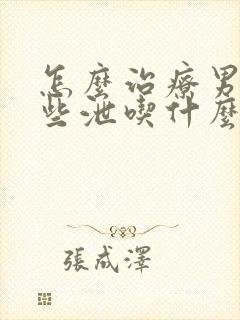 怎麼治療男
些泄喫什麼
張成澤